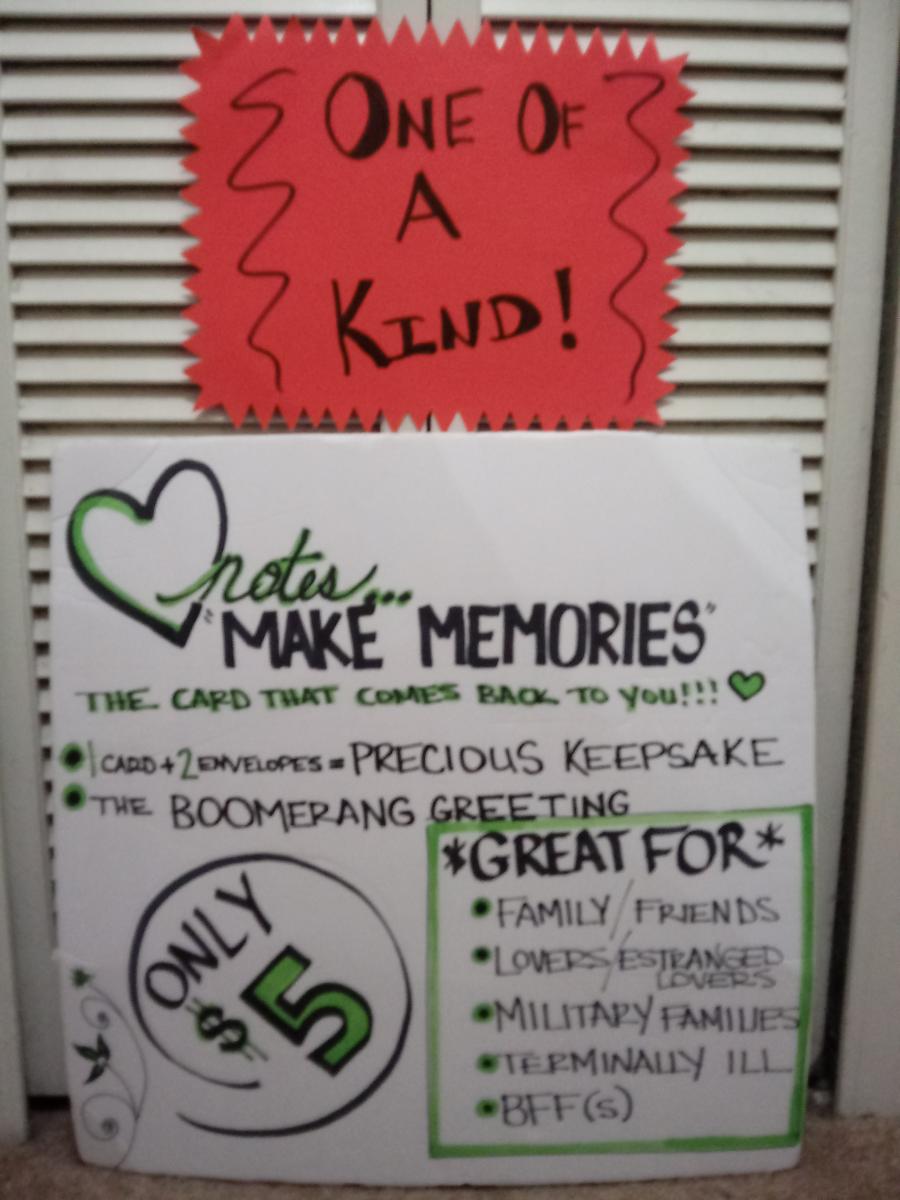 ONE OF
A
KIND!
notes...
"MAKE MEMORIES"
THE CARD THAT COMES BACK TO YOU!!!
1 CARD + 2 ENVELOPES = PRECIOUS KEEPSAKE
THE BOOMERANG GREETING
ONLY
$5
*GREAT FOR*
FAMILY/FRIENDS
LOVERS/ESTRANGED
LOVERS
MILITARY FAMILIES
TERMINALLY ILL
BFF(S)